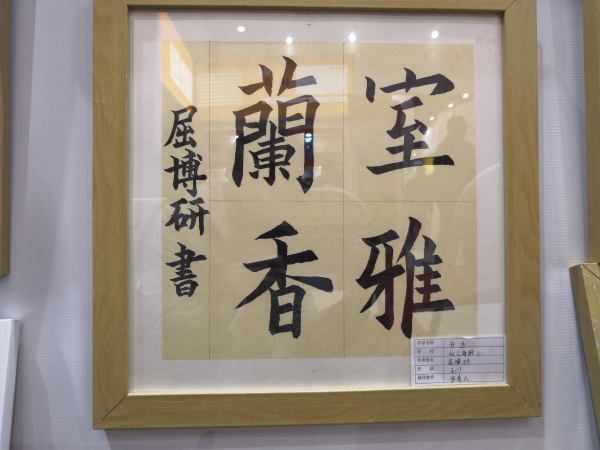 室雅
蘭香
屈博研書
作品名称 书法
学校
作者姓名 屈博研
班级
辅导教师